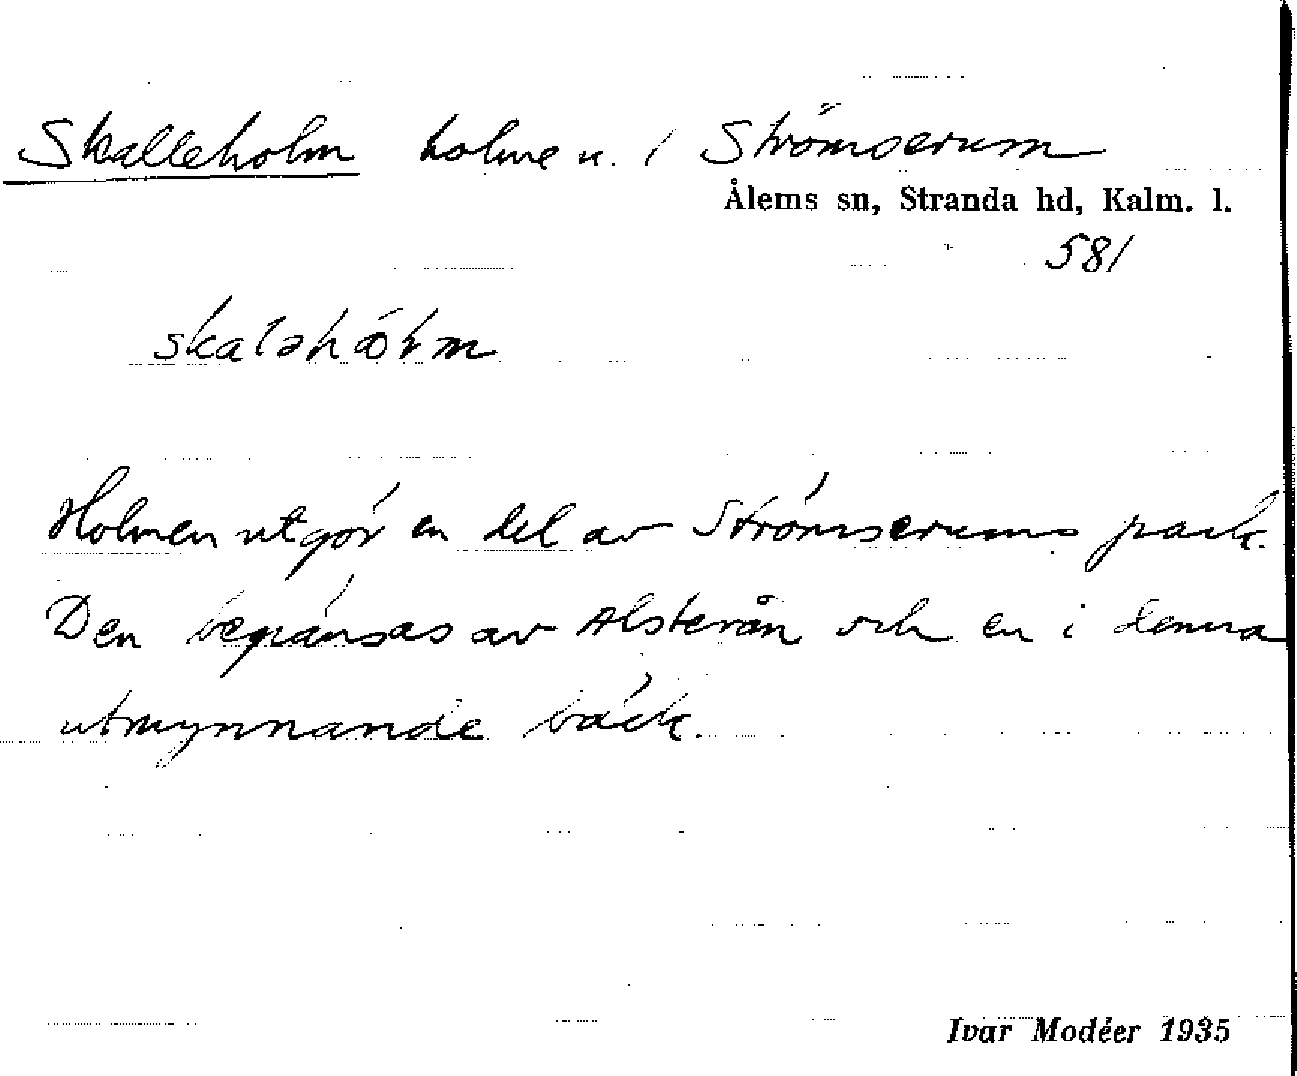 Skalleholm holme u. / Strömserum
Ålems sn, Stranda hd, Kalm. l.
581
Holmen utgör en del av Strömserums park.
Den begränsas av Alsterån och en i denna
utmynnande bäck.
Ivar Modéer 1935